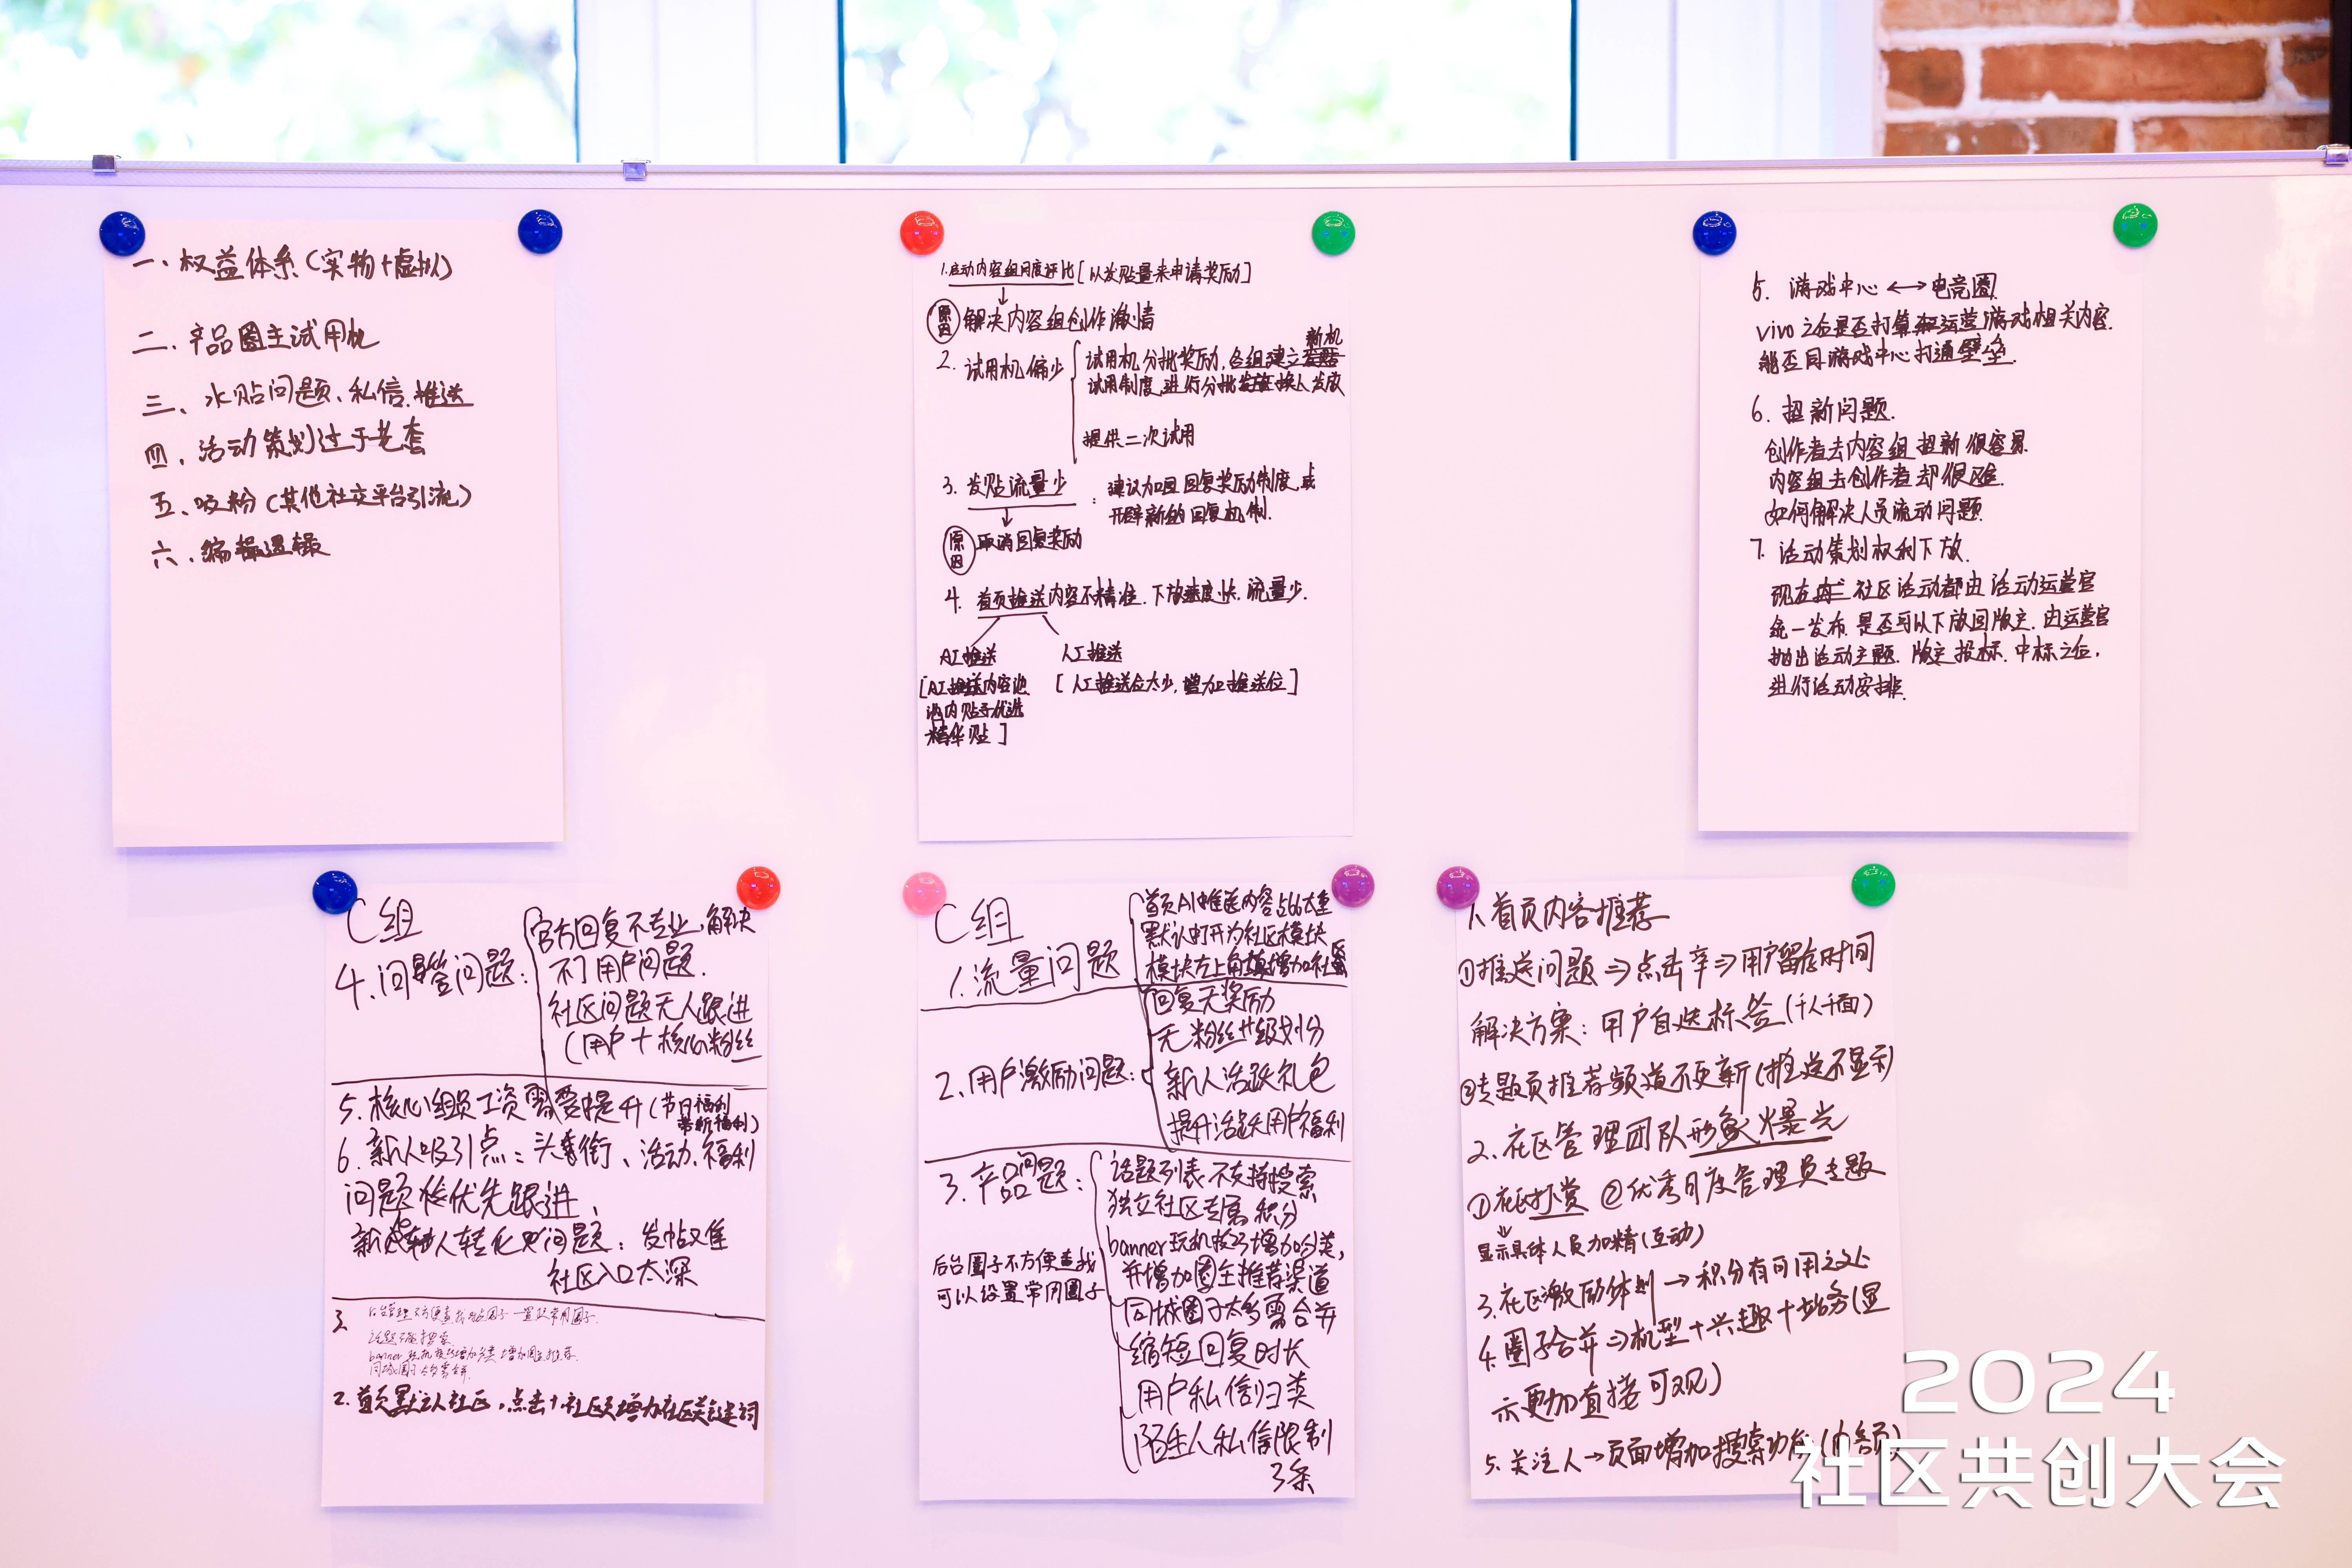 一、权益体系（实物+虚拟）
二、产品圈主试用机
三、水贴问题、私信、推送
四、活动策划过于老套
五、吸粉（其他社交平台引流）
六、编辑逻辑
1.启动内容组月度评比[以发贴量来申请奖励]
原因 解决内容组创作激情
2.试用机偏少
试用机分批奖励,各组建立新机
试用制度,进行分批换人发放
提供二次试用
3.发贴流量少
:建议加回回复奖励制度,或
开辟新的回复机制.
原因 取消回复奖励
4.首页推送内容不精准.下放速度长.流量少.
AI推送 人工推送
[AI推送内容池
池内贴子优选
精华贴]
[人工推送位太少,增加推送位]
5.游戏中心↔电竞圈
vivo之后是否打算运营游戏相关内容.
能否同游戏中心打通壁垒.
6.招新问题.
创作者去内容组招新很容易.
内容组去创作者却很难.
如何解决人员流动问题
7.活动策划权利下放.
现在 社区活动都由活动运营官
统一发布.是否可以下放回版主.由运营官
抛出活动主题.版主投标.中标之后,
进行活动安排.
C组
4.问答问题:
官方回复不专业,解决
不了用户问题.
社区问题无人跟进
(用户+核心粉丝
5.核心组员工资需要提升(节日福利
带新福利)
6.新人吸引点:头衔、活动、福利
问题优先跟进、
新人转化 问题:发帖难
社区入口太深
3
话题不能搜索
banner玩机技巧增加分类 增加圈主推荐
同城圈子太多需合并.
2.首页默认社区,点击+社区 增加社区关键词
C组
1.流量问题
首页AI推送内容占比太重
默认打开为社区模块
模块左上角 增加社
2.用户激励问题:
回复无奖励
无粉丝升级划分
新人活跃礼包
提升活跃用户福利
3.产品问题:
话题列表不支持搜索
独立社区专属积分
banner玩机技巧增加分类,
并增加圈主推荐渠道
同城圈子太多需合并
缩短回复时长
用户私信归类
陌生人私信限制
3条
后台圈子不方便查找
可以设置常用圈子
1.首页内容推荐
①推送问题⇒点击率⇒用户留存时间
解决方案:用户自选标签(千人千面)
②专题页推荐频道不更新(推送不显示)
2.社区管理团队形象曝光
①社区打赏 ②优秀月度管理员专题
显示具体人员加精(互动)
3.社区激励体制→积分有可用之处
4.圈子合并⇒机型+兴趣+站务(显
示更加直接可观)
5.关注人→页面增加搜索功能(内容页)
2024
社区共创大会